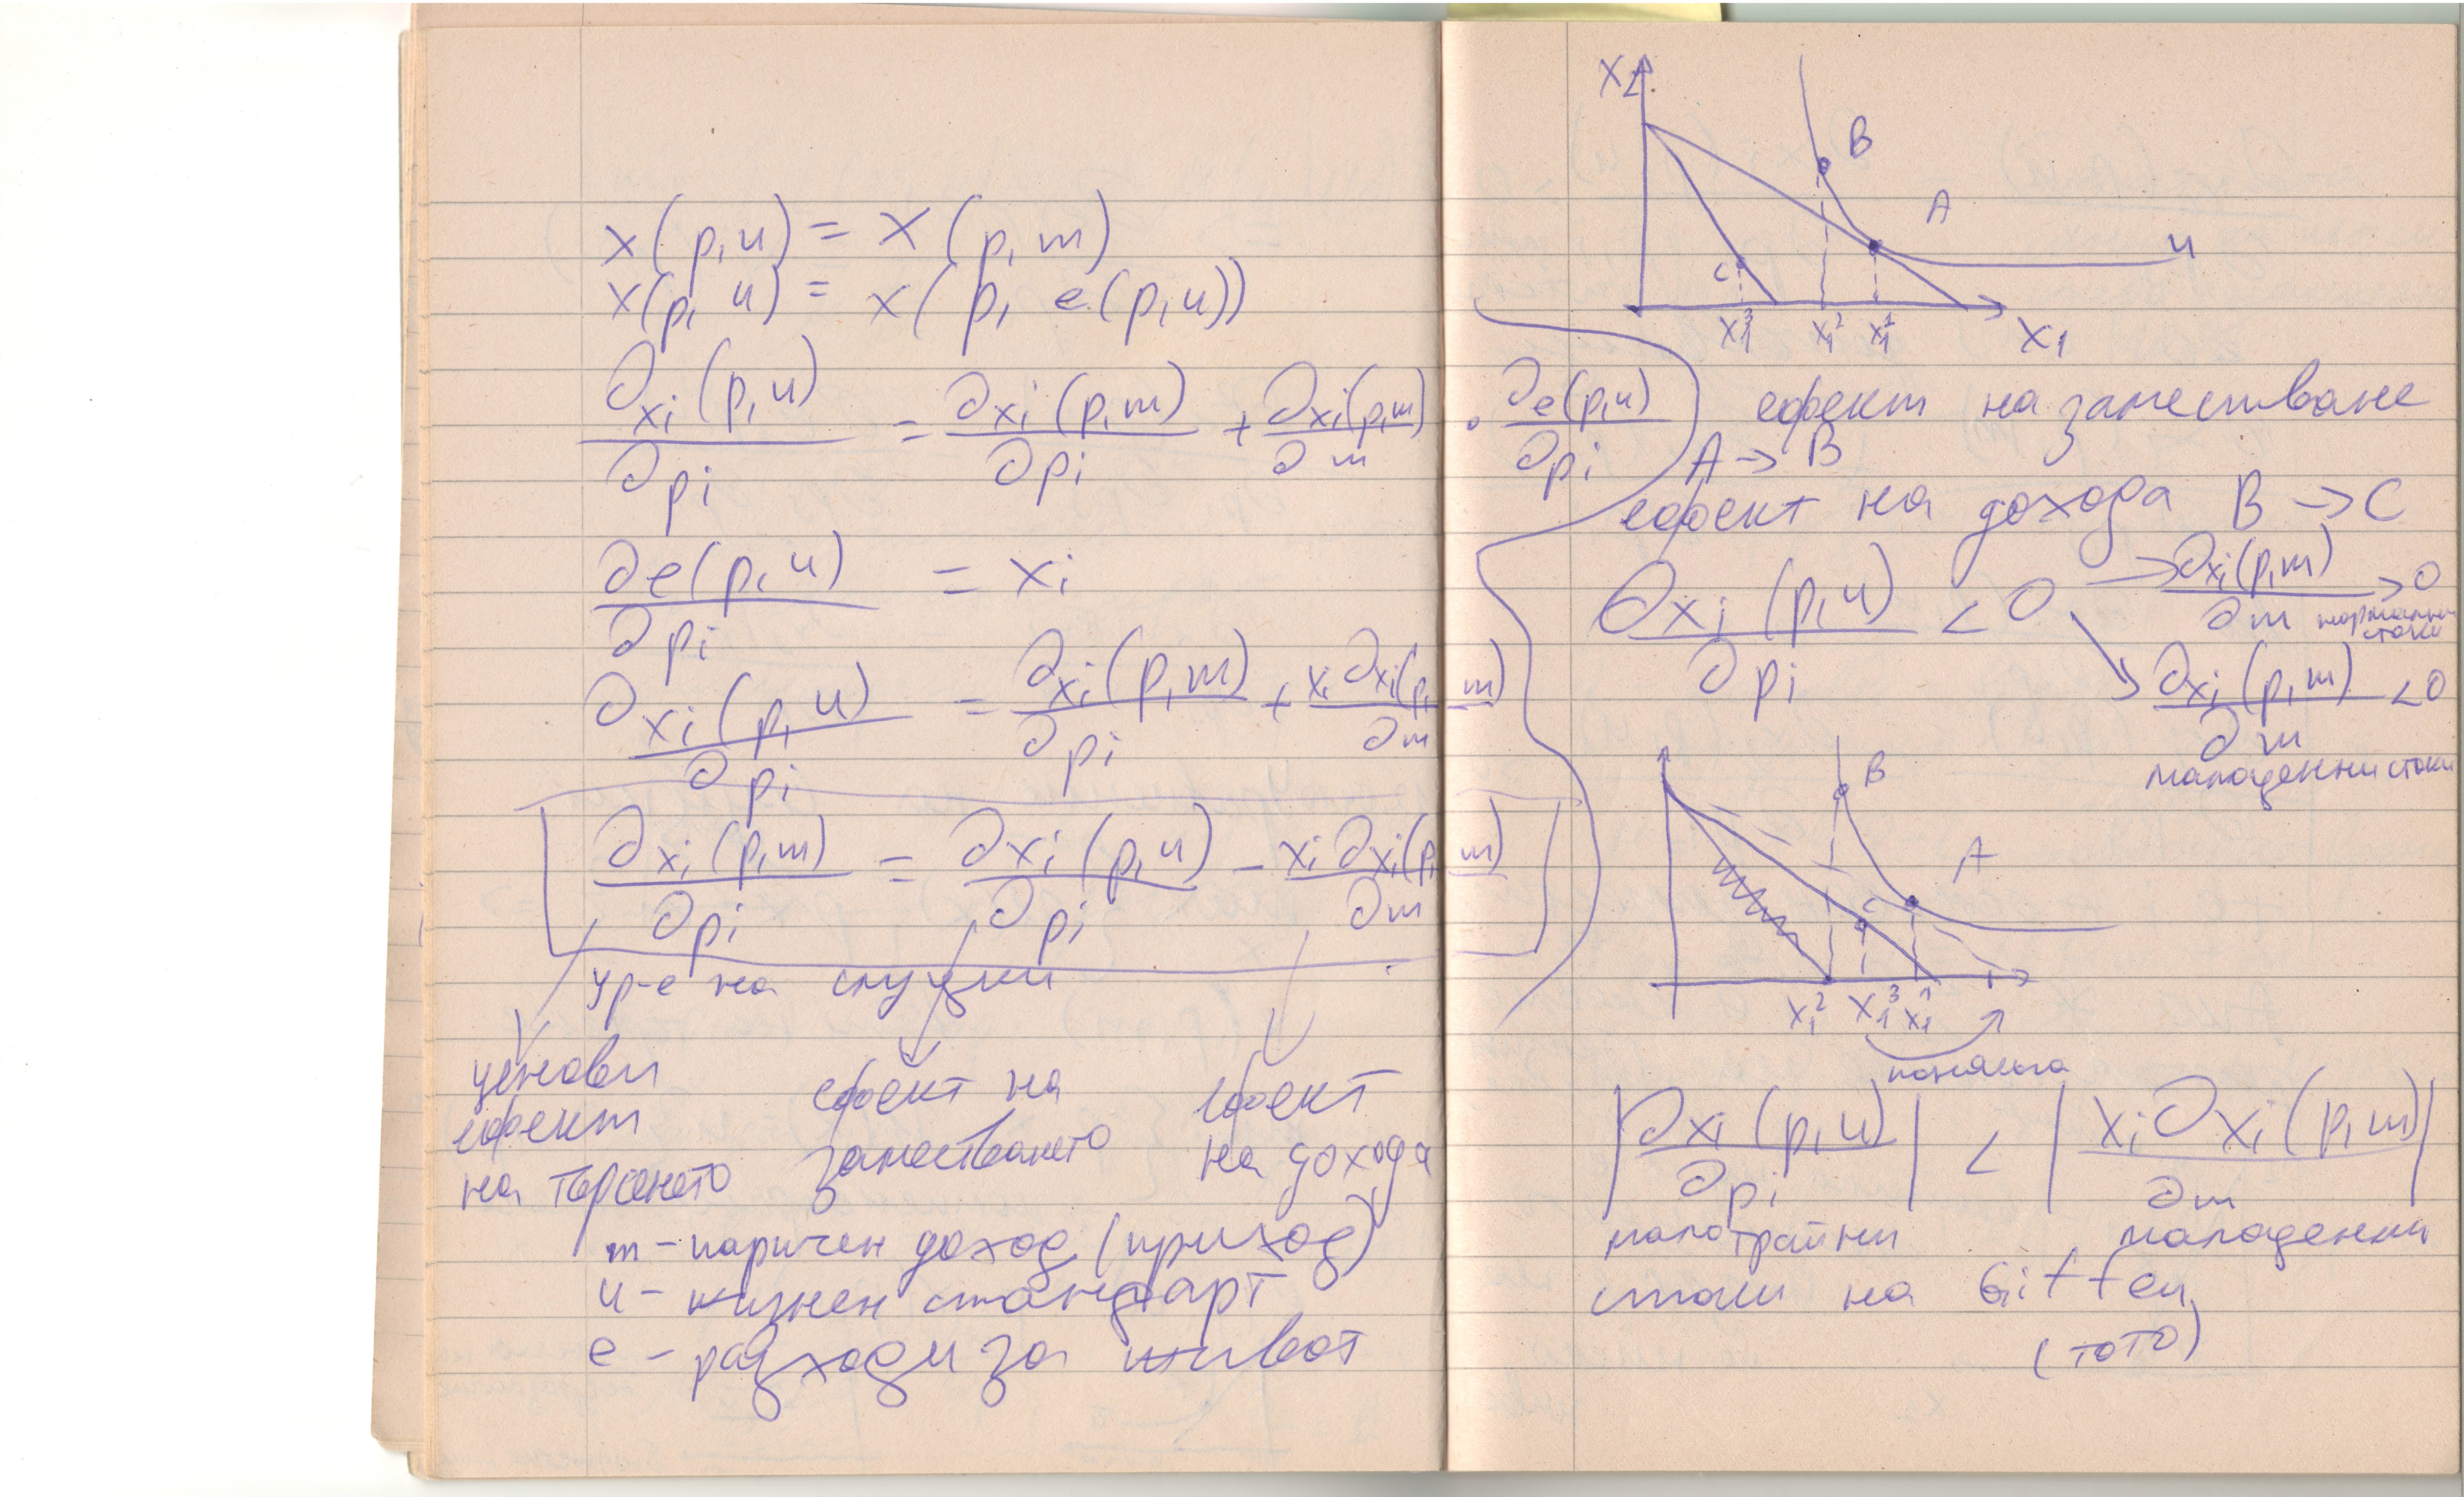 x(p,u) = x(p,m)
x(p,u) = x(p, e(p,u))
∂xi(p,u)/∂pi = ∂xi(p,m)/∂pi + ∂xi(p,m)/∂m · ∂e(p,u)/∂pi
∂e(p,u)/∂pi = xi
∂xi(p,u)/∂pi = ∂xi(p,m)/∂pi + xi ∂xi(p,m)/∂m
∂xi(p,m)/∂pi = ∂xi(p,u)/∂pi − xi ∂xi(p,m)/∂m
ур-е на слуцки
ценови ефект на търсенето
ефект на заместването
ефект на дохода
m - паричен доход (приход)
u - жизнен стандарт
e - разходи за живот
x2
B
A
u
C
x1^3 x1^2 x1^1
x1
ефект на заместване
A → B
ефект на дохода B → C
∂xi(p,u)/∂pi < 0
→ ∂xi(p,m)/∂m > 0
нормални стоки
↘ ∂xi(p,m)/∂m < 0
малоценни стоки
B
A
C
x1^2 x1^3 x1^1
|∂xi(p,u)/∂pi| < |xi ∂xi(p,m)/∂m|
малотрайни малоценни
стоки на Giffen
(тото)